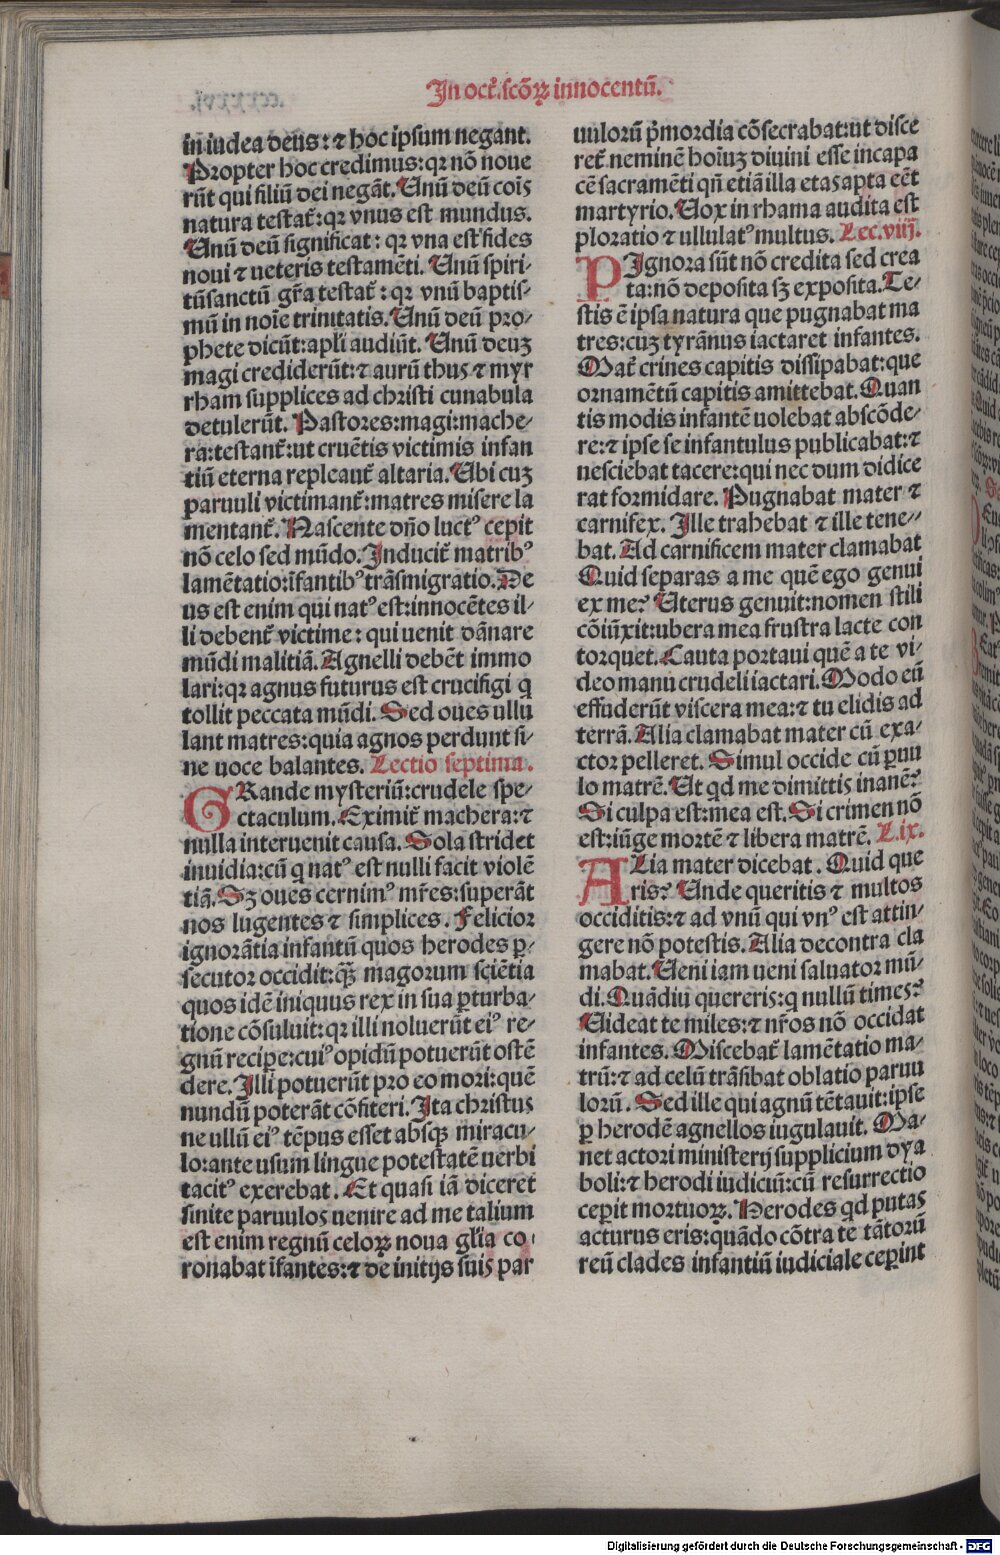 In oct̄. scōꝝ innocentū.
in iudea deus: ⁊ hoc ipsum negant.
Propter hoc credimus: qꝛ nō noue
rūt qui filiū dei negāt. Unū deū coīs
natura testat̄: qꝛ vnus est mundus.
Unū deū significat: qꝛ vna est fides
noui ⁊ veteris testamēti. Unū spiri-
tūsanctū gr̄a testat̄: qꝛ vnū baptis-
mū in noīe trinitatis. Unū deū pro-
phete dicūt: apli audiūt. Unū deuꝫ
magi crediderūt: ⁊ aurū thus ⁊ myr
rham supplices ad christi cunabula
detulerūt. Pastores: magi: mache-
ra: testant̄: ut cruētis victimis infan
tiū eterna repleant̄ altaria. Ubi cuꝫ
paruuli victimant̄: matres misere la
mentant̄. Nascente dn̄o luctꝰ cepit
nō celo sed mūdo. Inducit̄ matribꝰ
lamētatio: īfantibꝰ trāsmigratio. De
us est enim qui natꝰ est: innocētes il-
li debent̄ victime: qui uenit dānare
mūdi malitiā. Agnelli debēt immo
lari: qꝛ agnus futurus est crucifigi q
tollit peccata mūdi. Sed oues ullu
lant matres: quia agnos perdunt si-
ne uoce balantes. Lectio septima.
GRande mysteriū: crudele spe-
ctaculum. Eximit̄ machera: ⁊
nulla interuenit causa. Sola stridet
inuidia: cū q natꝰ est nulli facit violē
tiā. Sꝫ oues cernimꝰ mr̄es: superāt
nos lugentes ⁊ simplices. Felicior
ignorātia infantū quos herodes ꝑ-
secutor occidit: qꝫ̄ magorum sciētia
quos idē iniquus rex in sua ꝑturba-
tione cōsuluit: qꝛ illi noluerūt eiꝰ re-
gnū recipe: cuiꝰ opidū potuerūt ostē
dere. Illi potuerūt pro eo mori: quē
nundū poterāt cōfiteri. Ita christus
ne ullū eiꝰ tēpus esset absqꝫ miracu-
lo: ante usum lingue potestatē uerbi
tacitꝰ exerebat. Et quasi iā diceret
sinite paruulos uenire ad me talium
est enim regnū celoꝝ noua gl̄ia co-
ronabat īfantes: ⁊ de initijs suis par
uulorū p̄mordia cōsecrabat: ut disce
ret̄ neminē hoīuꝫ diuini esse incapa
cē sacramēti qn̄ etiā illa etas apta eēt
martyrio. Uox in rhama audita est
ploratio ⁊ ullulatꝰ multus. Lec. viij.
PIgnora sūt nō credita sed crea
ta: nō deposita sꝫ exposita. Te-
stis ē ipsa natura que pugnabat ma
tres: cuꝫ tyrānus iactaret infantes.
Mat̄ crines capitis dissipabat: que
ornamētū capitis amittebat. Quan
tis modis infantē uolebat abscōde-
re: ⁊ ipse se infantulus publicabat: ⁊
nesciebat tacere: qui nec dum didice
rat formidare. Pugnabat mater ⁊
carnifex. Ille trahebat ⁊ ille tene-
bat. Ad carnificem mater clamabat
Quid separas a me quē ego genui
ex me? Uterus genuit: nomen stili
cōiūxit: ubera mea frustra lacte con
torquet. Cauta portaui quē a te vi-
deo manu crudeli iactari. Modo eū
effuderūt viscera mea: ⁊ tu elidis ad
terrā. Alia clamabat mater cū exa-
ctor pelleret. Simul occide cū ꝑuu
lo matrē. Ut qd me dimittis inanē?
Si culpa est: mea est. Si crimen nō
est: iūge mortē ⁊ libera matrē. L. ix.
ALia mater dicebat. Quid que
ris? Unde queritis ⁊ multos
occiditis: ⁊ ad vnū qui vnꝰ est attin-
gere nō potestis. Alia decontra cla
mabat. Ueni iam ueni saluator mū-
di. Quādiu quereris: q nullū times?
Uideat te miles: ⁊ nr̄os nō occidat
infantes. Miscebat̄ lamētatio ma-
trū: ⁊ ad celū trāsibat oblatio paruu
lorū. Sed ille qui agnū tētauit: ipse
ꝑ herodē agnellos iugulauit. Ma-
net actori ministerij supplicium dya
boli: ⁊ herodi iudiciū: cū resurrectio
ceperit mortuoꝝ. Herodes qd putas
acturus eris: quādo cōtra te tātorū
reū clades infantiū iudiciale ceperint
Digitalisierung gefördert durch die Deutsche Forschungsgemeinschaft - DFG